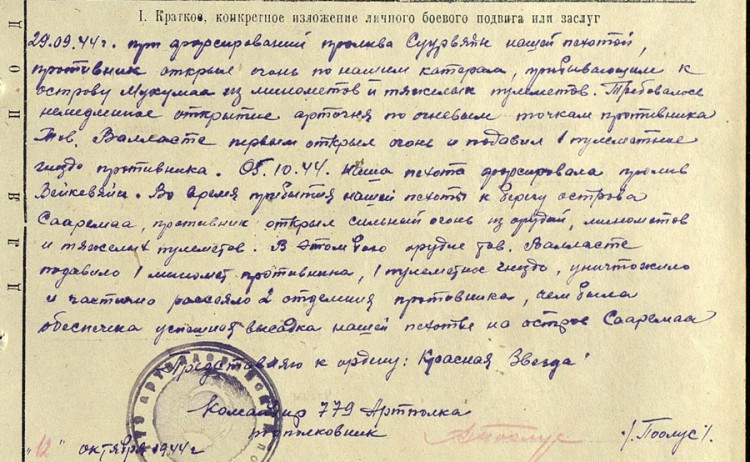 I. Краткое, конкретное изложение личного боевого подвига или заслуг
29.09.44г. при форсировании пролива Суурвяйн нашей пехотой,
противник открыл очень по нашим катерам, прибывающим к
острову Мухумаа из минометов и тяжелых пулеметов. Требовалось
немедленное открытие артогня по огневым точкам противника
Тов. Валласте первым открыл огонь и подавил 1 пулеметное
гнездо противника. 05.10.44. наша пехота форсировала пролив
Вейкевяйн. Во время прибытия нашей пехоты к берегу острова
Сааремаа, противник открыл сильный огонь из орудий, минометов
и тяжелых пулеметов. В этом бою орудие тов. Валласте
подавило 1 миномет противника, 1 пулеметное гнездо, уничтожило
и частично рассеяло 2 отделения противника, чем была
обеспечена успешная высадка нашей пехоты на остров Сааремаа
Представляю к ордену: Красная Звезда
Командир 779 Артполка
подполковник /Поолус/.
"12" октября 1944г
ДЛЯ ПОД